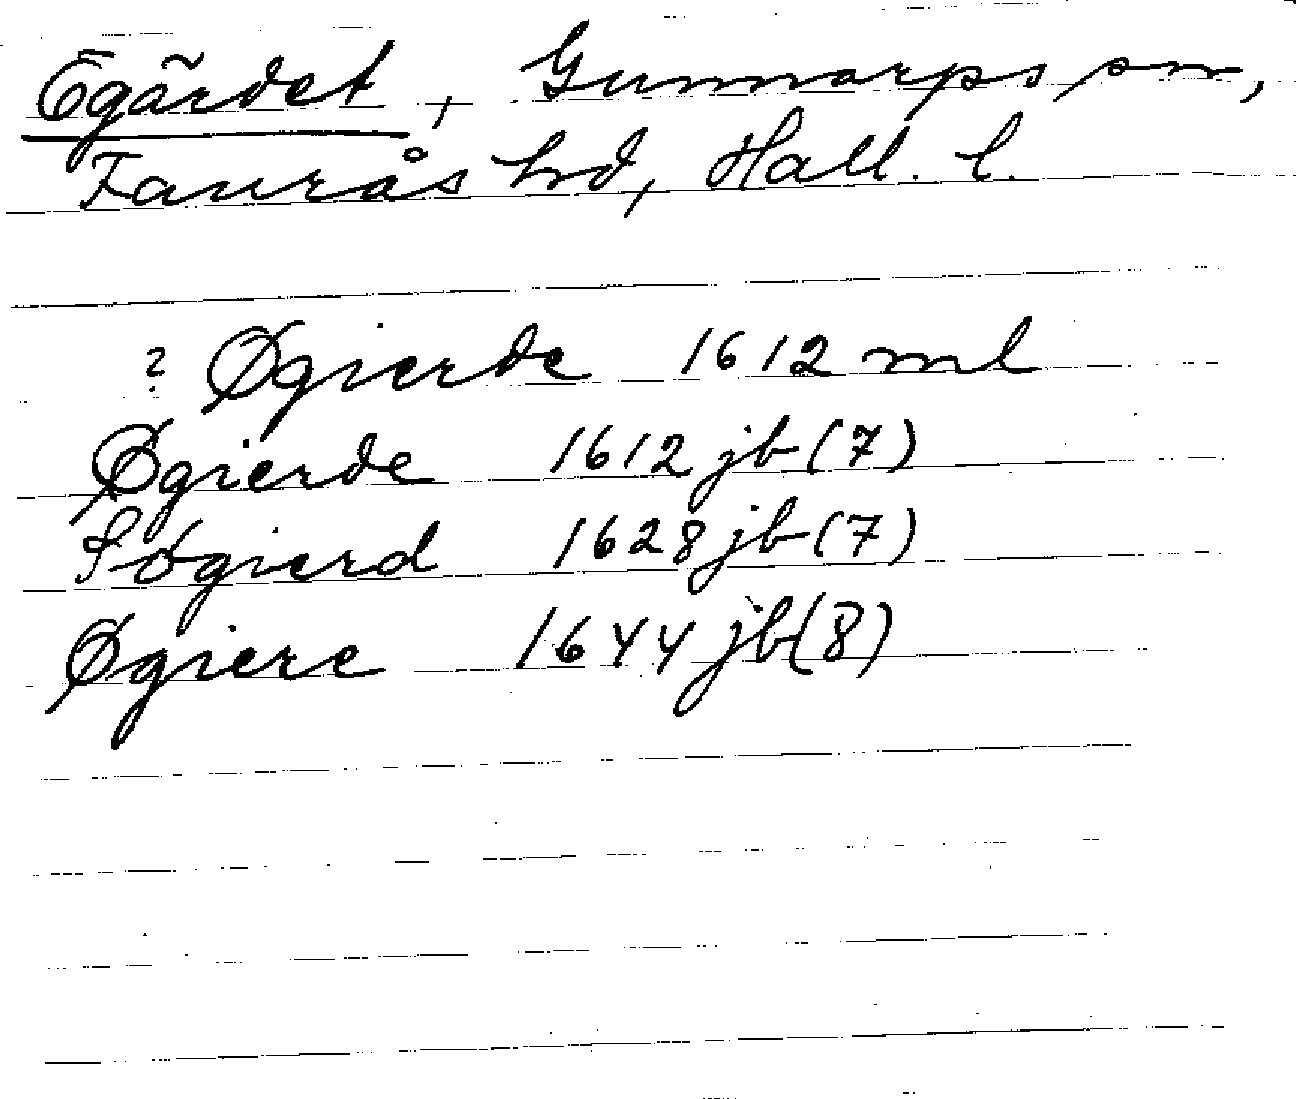 Ögärdet, Gunnarps sn,
Faurås hd, Hall. l.
? Øgierde 1612 ml
Øgierde 1612 jb (7)
Søgierd 1628 jb (7)
Øgiere 1644 jb (8)